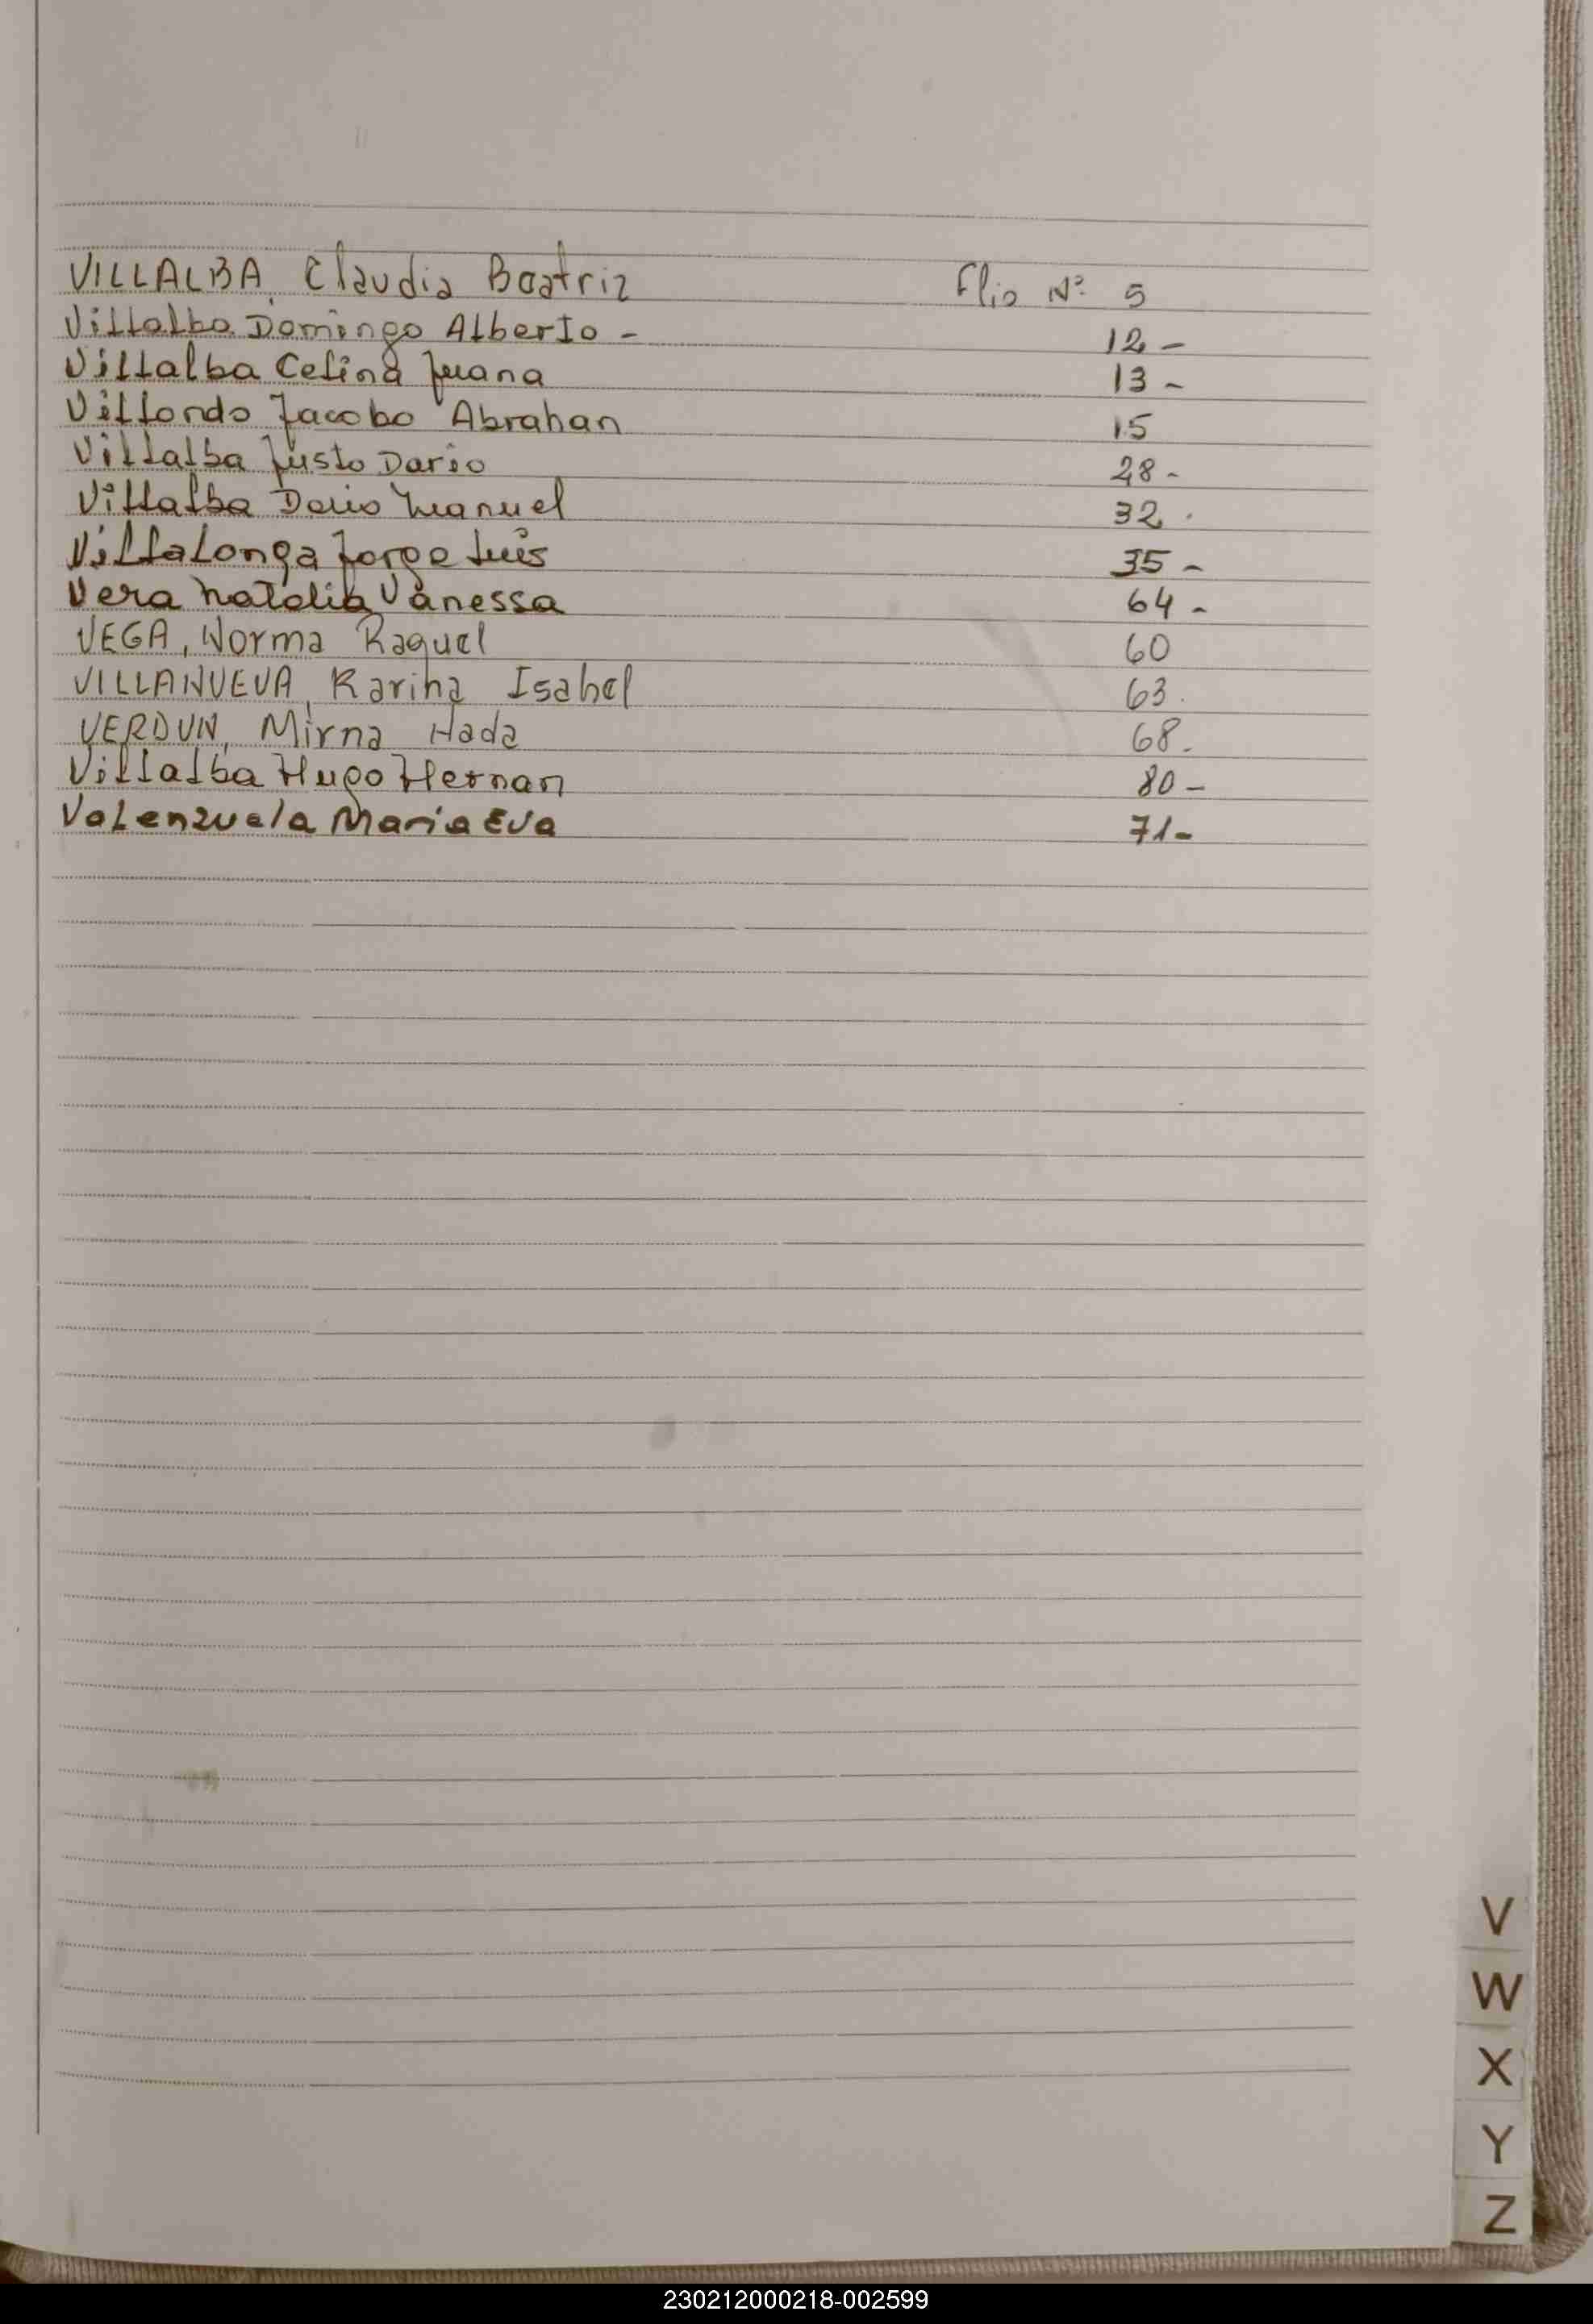 VILLALBA, Claudia Beatriz Flio Nº 5
Villalba Domingo Alberto - 12 -
Villalba Celina Juana 13 -
Villordo Jacobo Abrahan 15
Villalba Justo Dario 28 -
Villalba Dario Manuel 32 .
Villalonga Jorge Luis 35 -
Vera Natalia Vanessa 64 -
VEGA, Norma Raquel 60
VILLANUEVA, Karina Isabel 63.
VERDUN, Mirna Hada 68.
Villalba Hugo Hernan 80 -
Valenzuela Maria Eva 71 -
V
W
X
Y
Z
230212000218-002599